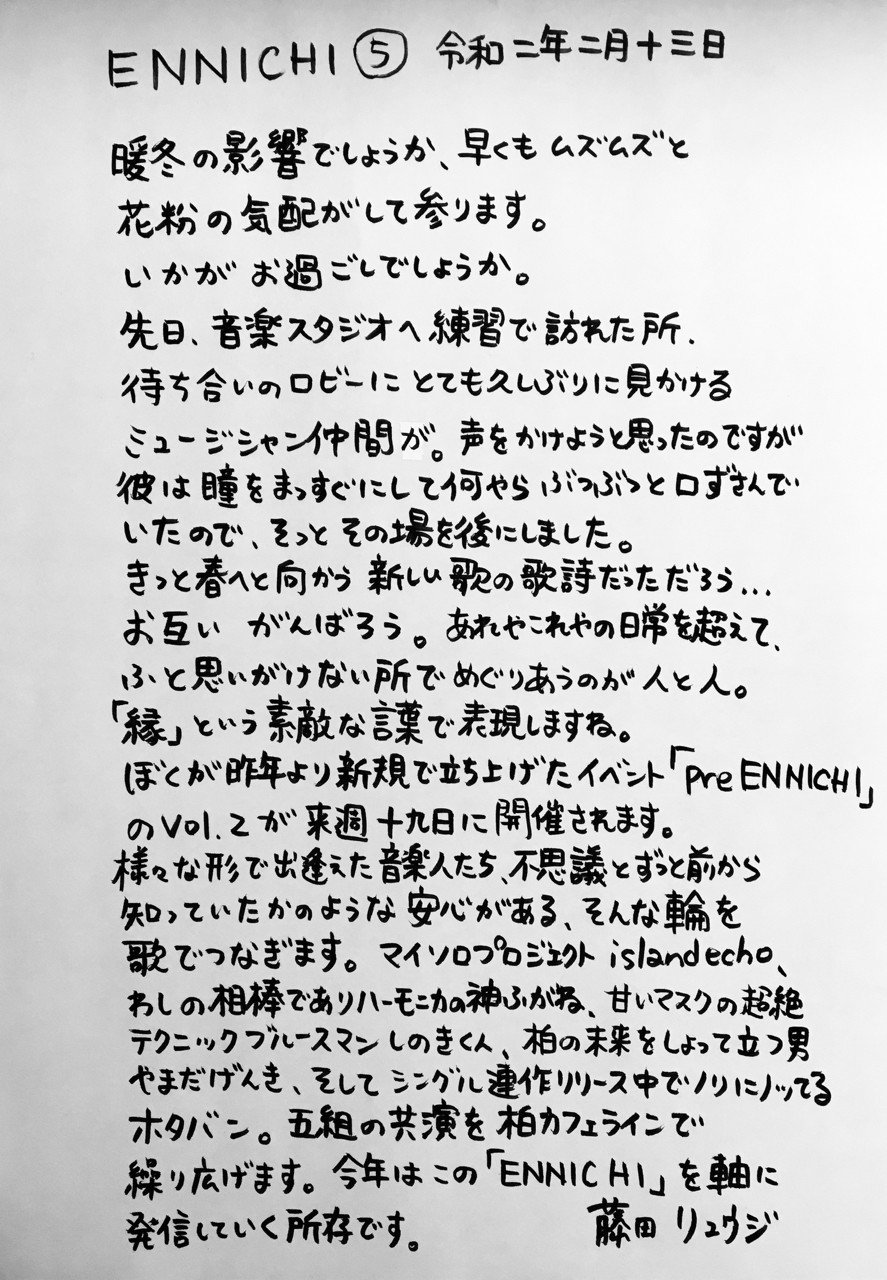 ENNICHI ⑤ 令和二年二月十三日
暖冬の影響でしょうか、早くもムズムズと
花粉の気配がして参ります。
いかがお過ごしでしょうか。
先日、音楽スタジオへ練習で訪れた所、
待ち合いのロビーにとても久しぶりに見かける
ミュージシャン仲間が。声をかけようと思ったのですが
彼は瞳をまっすぐにして何やらぶつぶつと口ずさんで
いたので、そっとその場を後にしました。
きっと春へと向かう新しい歌の歌詩だっただろう...
お互いがんばろう。あれやこれやの日常を超えて、
ふと思いがけない所でめぐりあうのが人と人。
「縁」という素敵な言葉で表現しますね。
ぼくが昨年より新規で立ち上げたイベント「pre ENNICHI」
のVol.2が来週十九日に開催されます。
様々な形で出逢えた音楽人たち、不思議とずっと前から
知っていたかのような安心がある、そんな輪を
歌でつなぎます。マイソロプロジェクトisland echo、
わしの相棒でありハーモニカの神ふがね、甘いマスクの超絶
テクニックブルースマンしのきくん、柏の未来をしょって立つ男
やまだげんき、そしてシングル連作リリース中でノリにノッてる
ホタバン。五組の共演を柏カフェラインで
繰り広げます。今年はこの「ENNICHI」を軸に
発信していく所存です。 藤田リュウジ